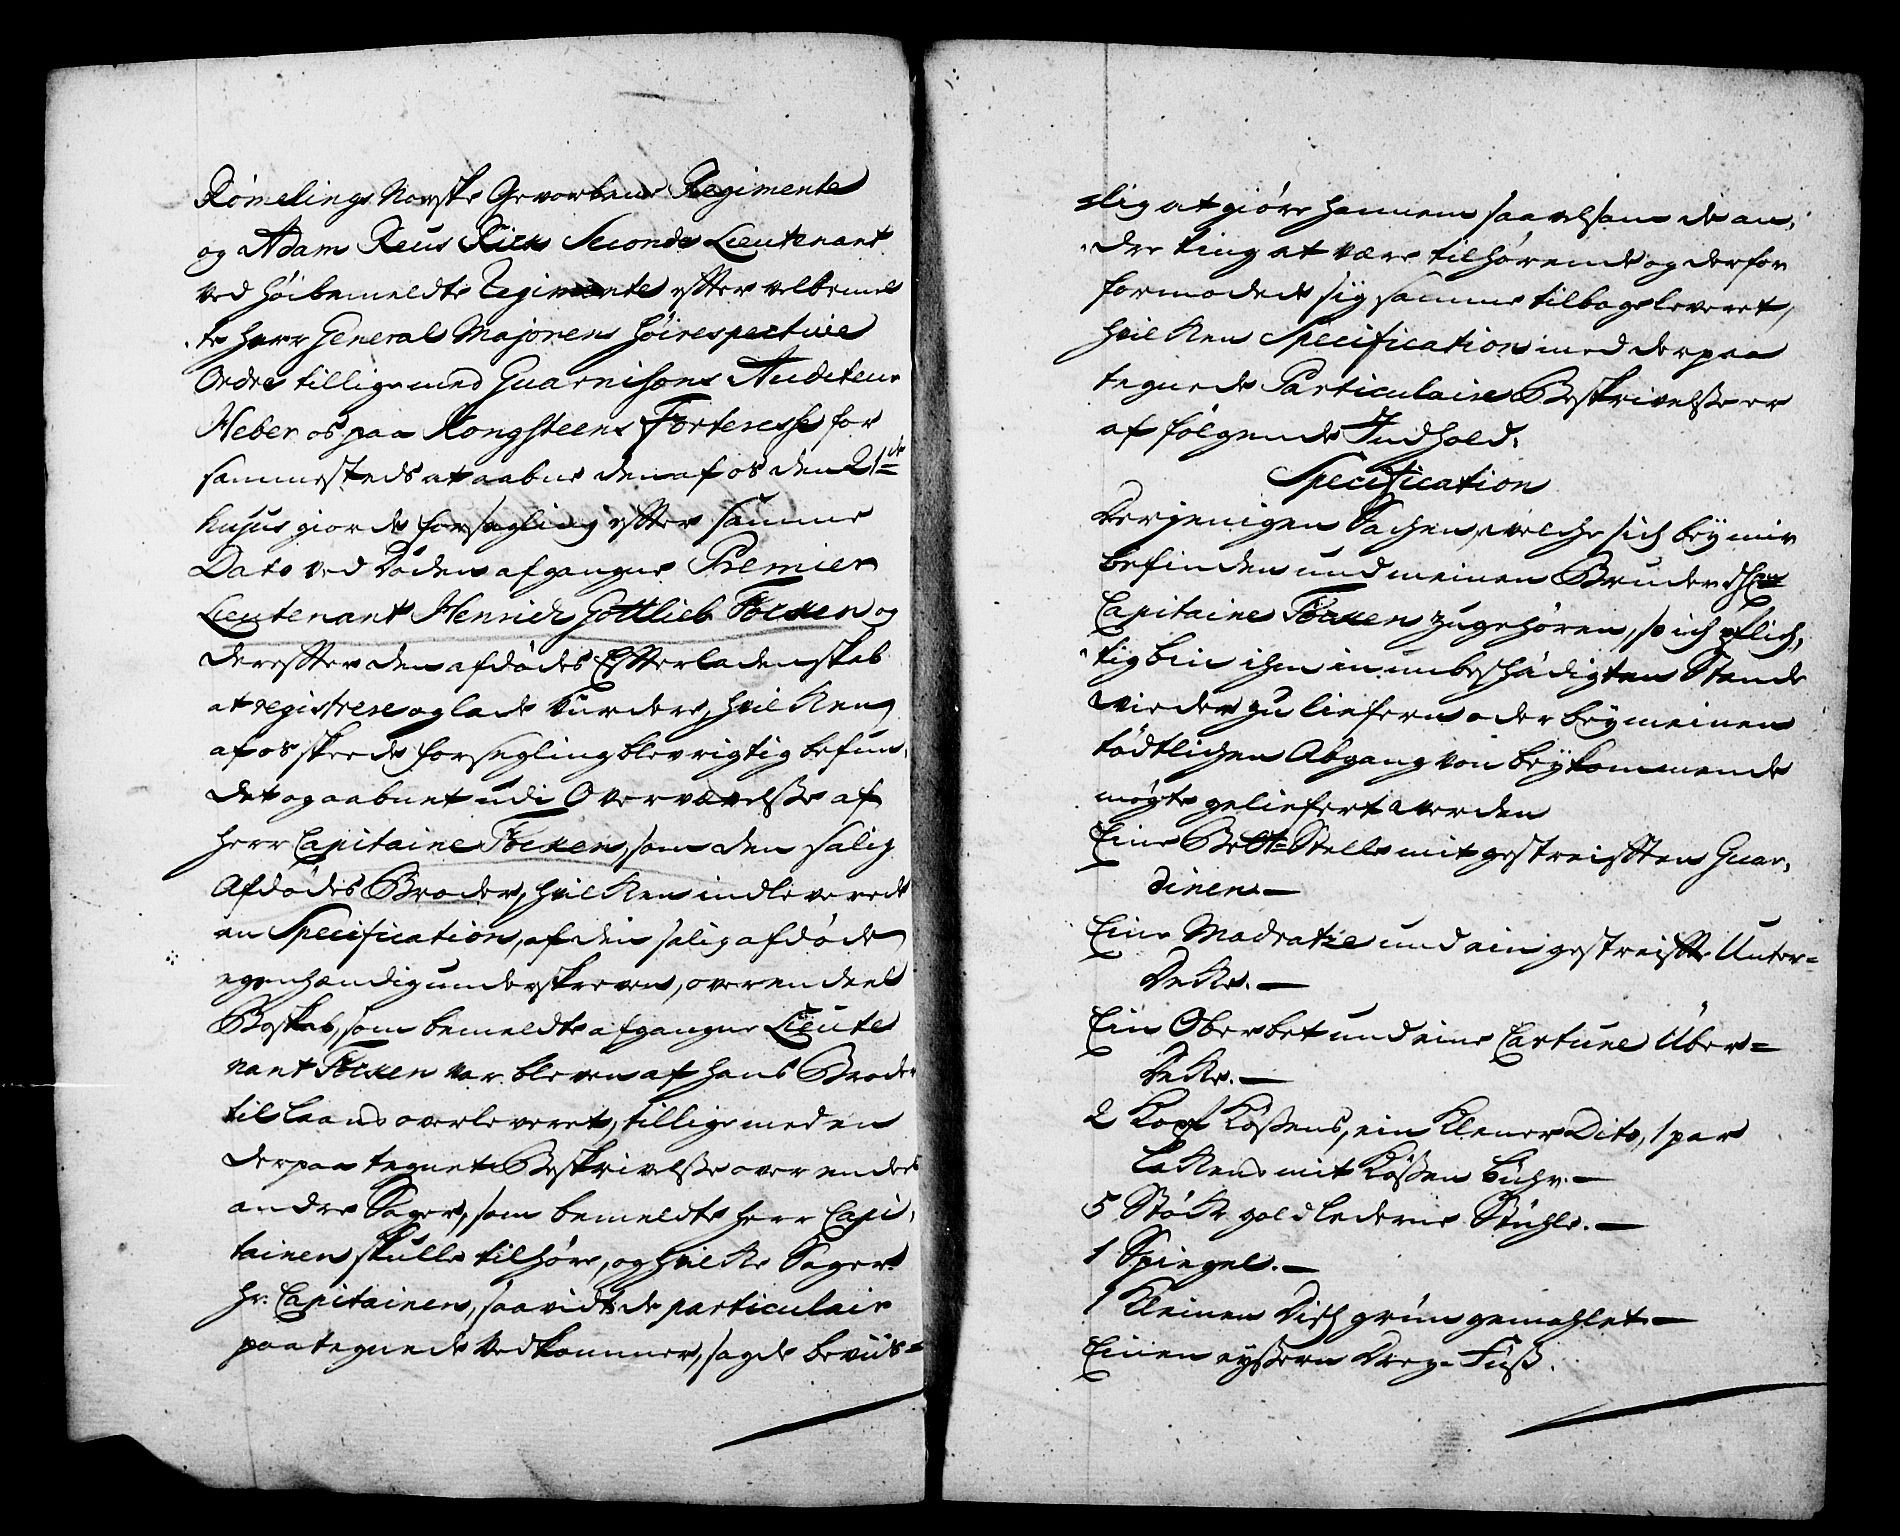 Römelings Norske Gevorbene Regimente
og Adam Reus Rieck Seconde Lieutenant
ved höibemeldte Regimente efter velbemel
te Herr General Majorens höirespective
Ordre tillige med Guarnisons Auditeur
Heber os paa Kongsteens Forteresse for
sammesteds at aabne den af os den 21de
hujus giorde forsegling efter samme
Dato ved döden afgangne Premier
Lieutenant Henrich Gottlieb Föcken og
derefter den afdödes Efterladenskab
at registrere og lade vurdere, hvilken
af os skeede forsegling blev rigtig befun-
det og aabnet udi Overværelse af
Herr Capitaine Föcken, som den salig
Afdödes Broder, hvilken indleverede
en Specification, af den salig afdöde
egenhændig underskreven, over en deel
Boskab, som bemeldte afgangne Lieute
nant Föcken var bleven af hans Broder
til laans overleveret, tillige med en
derpaa tegnet Beskrivelse over en deel
andre Sager, som bemeldte Herr Capi-
tainen skulle tilhöre, og hvilke Sager
Hr: Capitainen, saavidt de particulair
paategnede vedkommer, sagde beviis=
slig at giöre hannem saavelsom de an-
dre ting at være tilhörende og derfor
formodede sig samme tilbageleveret,
hvilken Specification med derpaa
tegnede Particulaire Beskrivelse er
af fölgende Indhold:
Specification
Derjenigen Sachen, welche sich bey mir
befinden und meinen Bruder dHerr
Capitaine Föcken zugehören, so ich pflich-
tig bin ihm in unbeschädigten Stande
wieder zu liefern oder bey meinen
tödtlichen Abgang von beykommende
mögte geliefert werden
Eine Bett-Stelle mit gestreifften Guar-
dinen. —
Eine Madratze und ein gestreiffte Unter=
Decke. —
Ein Oberbet und eine Cartune Über=
Decke. —
2 Kopf Küssens, ein Klener Dito, 1 par
Lakens mit Küssen Bühr. —
5 Stöck goldlederne Stühle. —
1 Spiegel. —
1 Kleinen Disch grün gemahlet —
Einen eyssern Drey-Fuß.